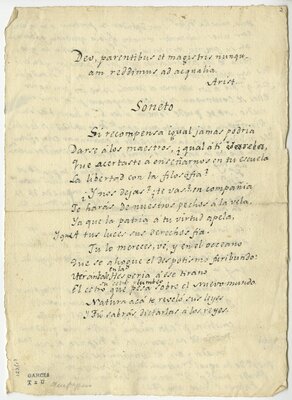 Deo, parentibus et magistris nunqu-
am reddimus ad aequalia.
Arist.
Soneto
Si recompensa igual jamas podria
Darse á los maestros, ¿qual á ti Garcia,
Que acertaste á enseñarnos en tu escuela
La libertad con la filosofia?
¿Y nos dejas? ¿te vas? en compañia
Te harás de nuestros pechos á la vela,
Ya que la patria á tu virtud apela,
Y á tus luces sus derechos fia.
Tu lo mereces, ve, y en el occeano
Que se ahogue el despotismo feribundo:
Hesperia á ese tirano
El cetro que pesa sobre el nuevo mundo
Natura acá te reveló sus leyes
Y tú sabrás dictarlas a los reyes.
GARCIA